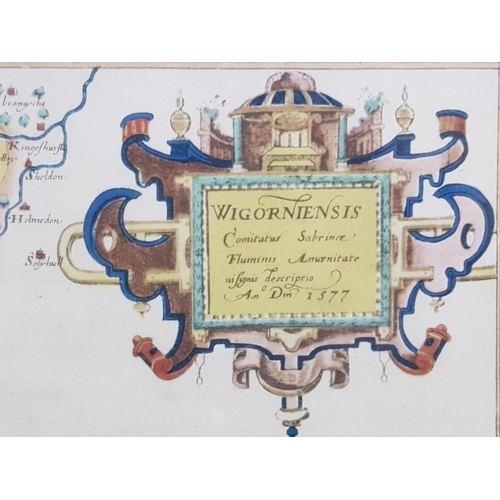 branwiche
Kingeshurst
Sheldon
Helmedon
Solyhull
WIGORNIENSIS
Comitatus Sabrinæ
Fluminis Amœnitate
insignis descriptio
Ano Dni 1577